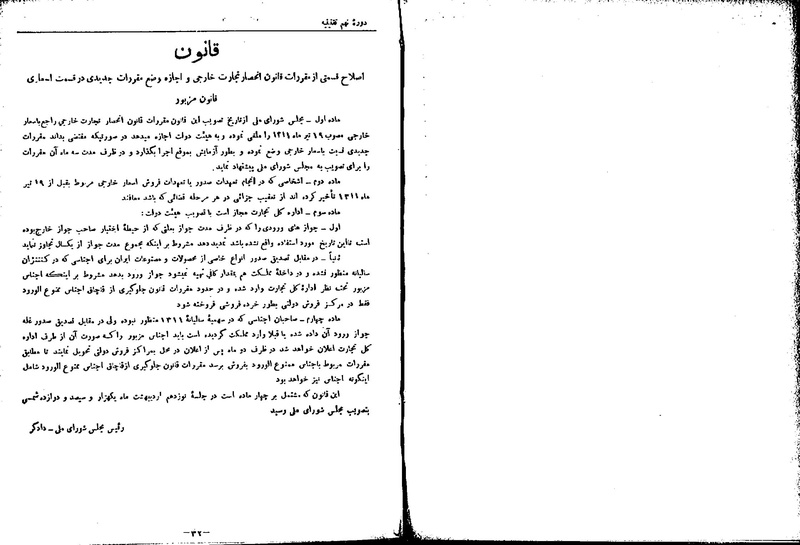 دورهٔ نهم تقنینیه
قانون
اصلاح قسمتی از مقررات قانون انحصار تجارت خارجی و اجازه وضع مقررات جدیدی در قسمت اسعاری
قانون مزبور
ماده اول ـ مجلس شورای ملی از تاریخ تصویب این قانون مقررات قانون انحصار تجارت خارجی راجع باسعار
خارجی مصوب ۱۹ تیر ماه ۱۳۱۱ را ملغی نموده و به هیئت دولت اجازه میدهد در صورتیکه مقتضی بداند مقررات
جدیدی نسبت باسعار خارجی وضع نموده و بطور آزمایش بموقع اجرا بگذارد و در ظرف مدت سه ماه آن مقررات
را برای تصویب به مجلس شورای ملی پیشنهاد نماید.
ماده دوم ـ اشخاصی که در انجام تعهدات صدور یا تعهدات فروش اسعار خارجی مربوط بقبل از ۱۹ تیر
ماه ۱۳۱۱ تأخیر کرده اند از تعقیب جزائی در هر مرحله قضائی که باشد معافند
ماده سوم ـ اداره کل تجارت مجاز است با تصویب هیئت دولت:
اول ـ جواز های ورودی را که در ظرف مدت جواز بعللی که از حیطهٔ اختیار صاحب جواز خارج بوده
است تا این تاریخ مورد استفاده واقع نشده باشد تمدید دهد مشروط بر اینکه مجموع مدت جواز از یکسال تجاوز نیاید
ثانیاً ـ در مقابل تصدیق صدور انواع خاصی از محصولات و مصنوعات ایران برای اجناسی که در کنتنژان
سالیانه منظور نشده و در داخلهٔ مملکت هم بمقدار کافی تهیه نمیشود جواز ورود بدهد مشروط بر اینکه اجناس
مزبور تحت نظر ادارهٔ کل تجارت وارد شده و در حدود مقررات قانون جلوگیری از قاچاق اجناس ممنوع الورود
فقط در مرکز فروش دولتی بطور خرده فروشی فروخته شود
ماده چهارم ـ صاحبان اجناسی که در سهمیهٔ سالیانهٔ ۱۳۱۱ منظور نبوده ولی در مقابل تصدیق صدور غله
جواز ورود آن داده شده یا قبلا وارد مملکت گردیده است باید اجناس مزبور را که صورت آن از طرف اداره
کل تجارت اعلان خواهد شد در ظرف دو ماه پس از اعلان در محل بمراکز فروش دولتی تحویل نمایند تا مطابق
مقررات مربوط باجناس ممنوع الورود بفروش برسد مقررات قانون جلوگیری از قاچاق اجناس ممنوع الورود شامل
اینگونه اجناس نیز خواهد بود
این قانون که مشتمل بر چهار ماده است در جلسهٔ نوزدهم اردیبهشت ماه یکهزار و سیصد و دوازده شمسی
بتصویب مجلس شورای ملی رسید
رئیس مجلس شورای ملی ـ دادگر
ـ۳۲ـ